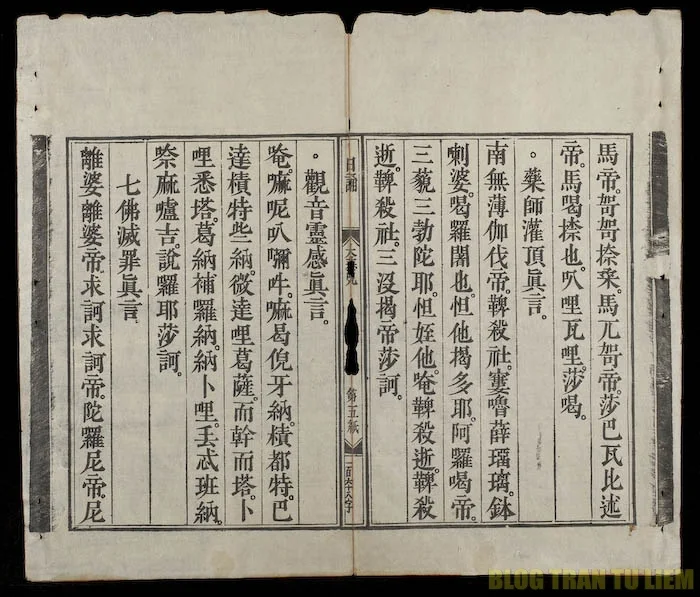 馬帝。哿哿捺桒。馬兀哿帝。莎巴瓦比述
帝。馬喝捺也。叭哩瓦哩。莎喝。
。藥師灌頂眞言。
南無薄伽伐帝。鞞殺社。窶嚕薜瑠璃。鉢
喇婆。喝羅闍也。怛他揭多耶。阿羅喝帝。
三藐三勃陀耶。怛姪他。唵鞞殺逝。鞞殺
逝。鞞殺社。三沒揭帝莎訶。
日誦
第五紙
一百六十六字
。觀音靈感眞言。
唵。嘛呢叭彌吽。嘛曷倪牙納。積都特。巴
達積特些納。微達哩葛薩。而幹而塔。卜
哩悉塔。葛納補羅納。納卜哩。丟忒班納。
奈麻嚧吉。說羅耶莎訶。
七佛滅罪眞言
離婆離婆帝。求訶求訶帝。陀羅尼帝。尼
BLOG TRAN TU LIEM